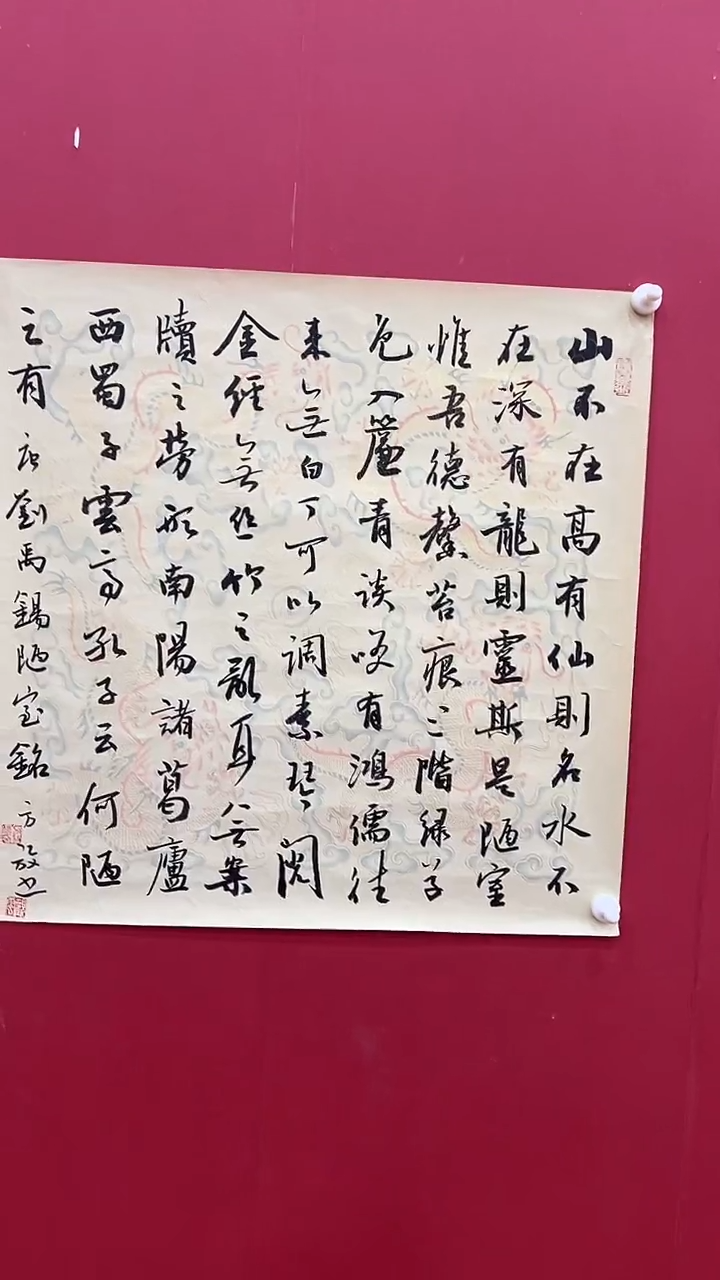 山不在高有仙則名水不
在深有龍則靈斯是陋室
惟吾德馨苔痕上階緑草
色入簾青談笑有鴻儒往
来無白丁可以調素琴閲
金経無絲竹之亂耳無案
牘之勞形南陽諸葛廬
西蜀子雲亭孔子云何陋
之有 唐劉禹錫陋室銘 方